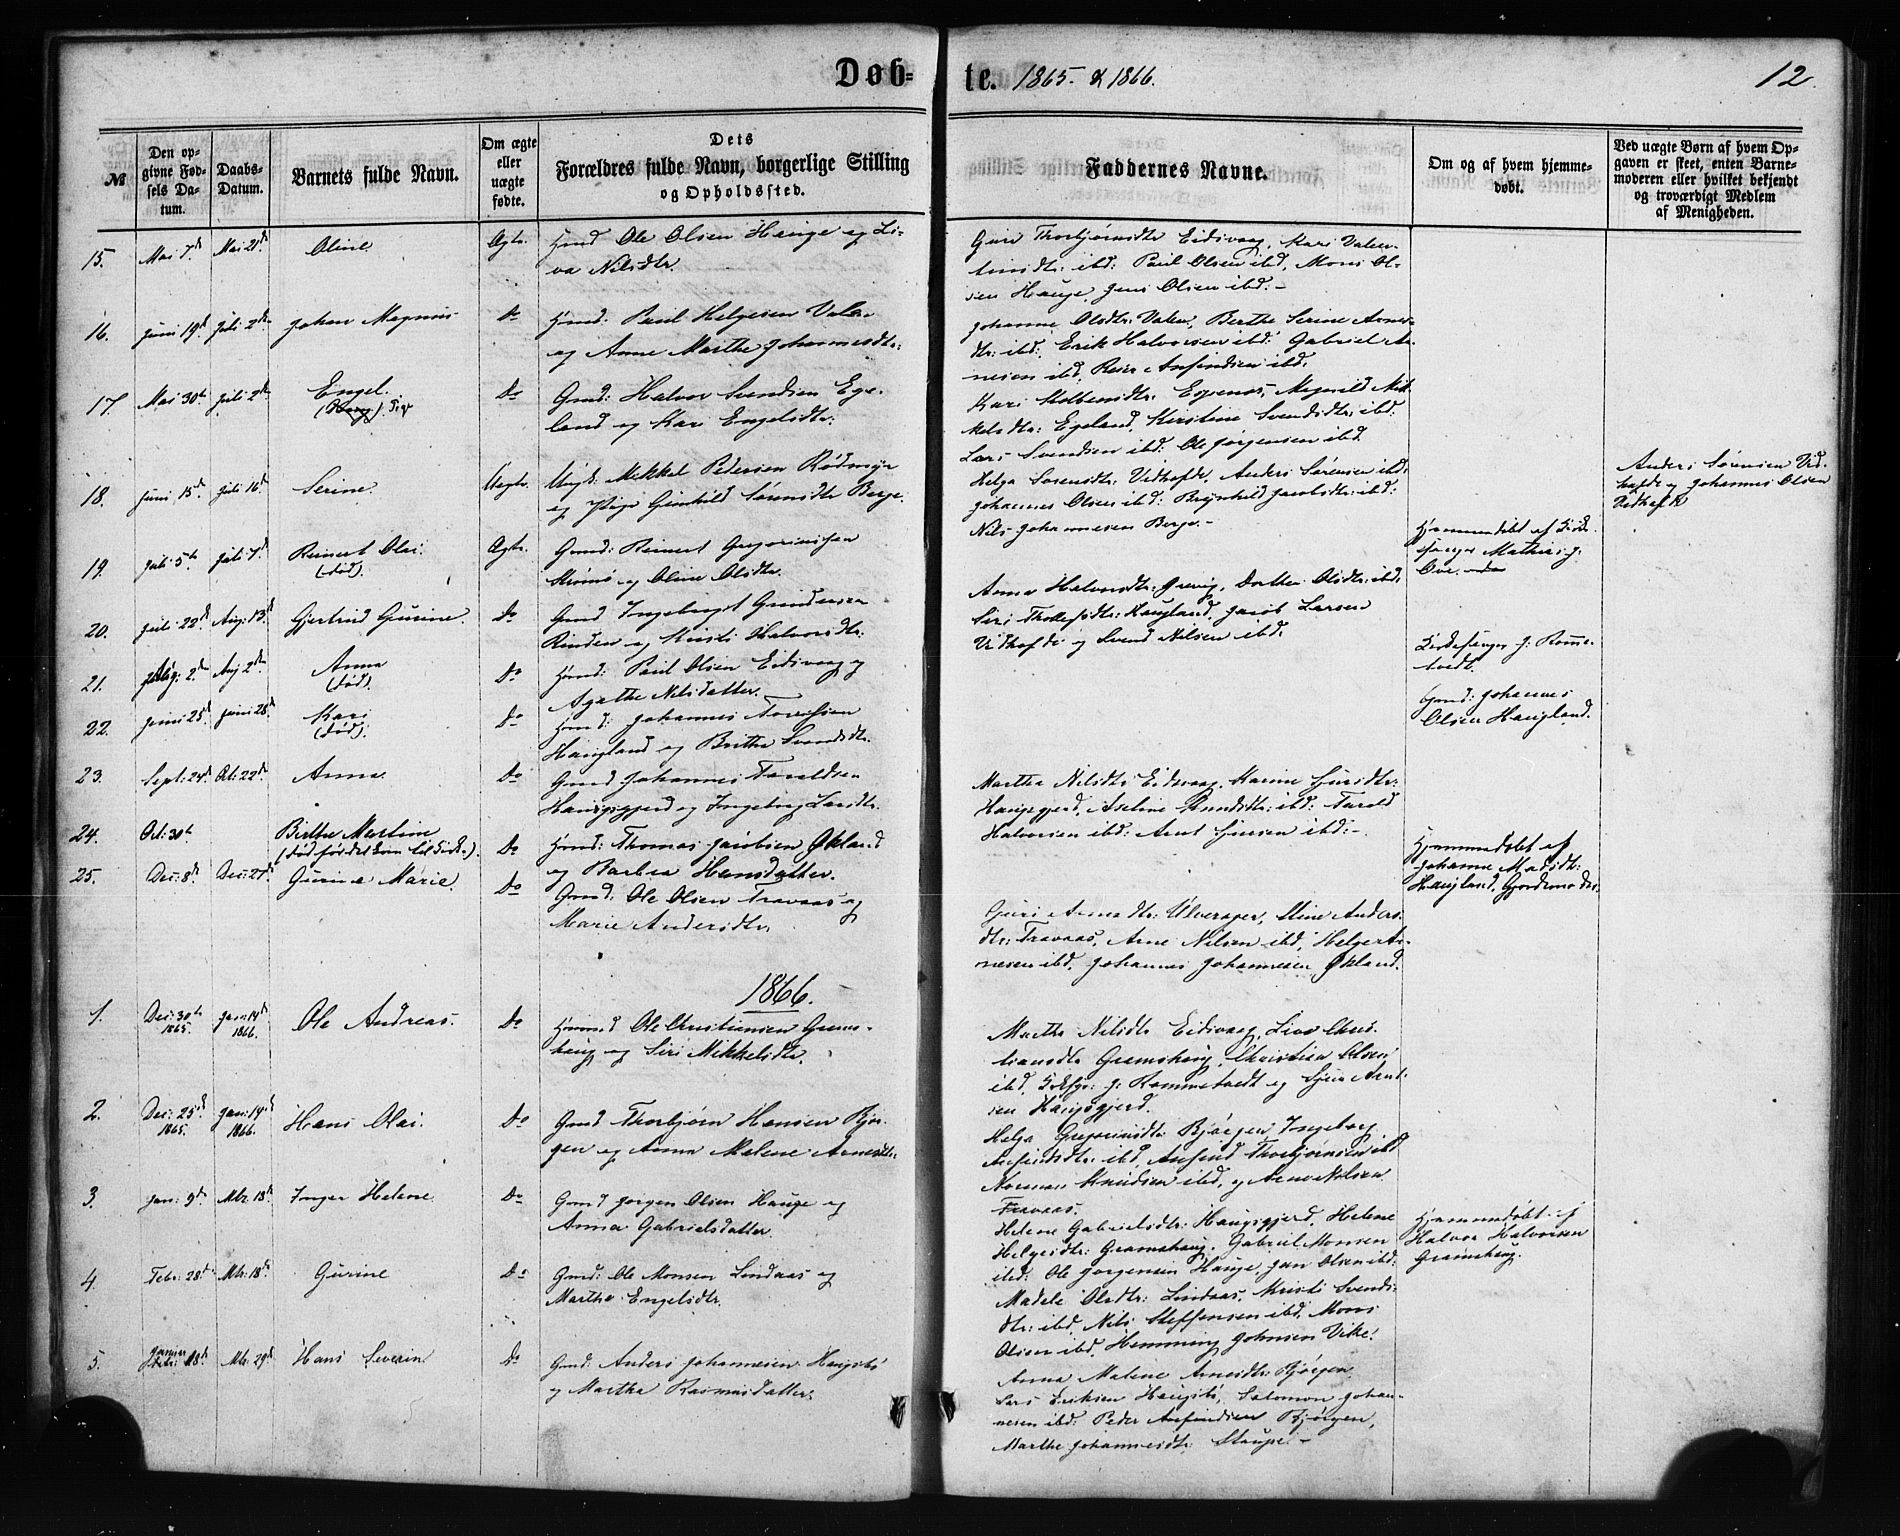 Døb-
te. 1865. & 1866.
12.
№
Den op-
givne Fød-
sels Da-
tum.
Daabs-
Datum.
Barnets fulde Navn.
Om ægte
eller
uægte
fødte.
Dets
Forældres fulde Navn, borgerlige Stilling
og Opholdssted.
Faddernes Navne.
Om og af hvem hjemme-
døbt.
Ved uægte Børn af hvem Op-
gaven er skeet, enten Barne-
moderen eller hvilket bekjendt
og troværdigt Medlem
af Menigheden.
15. Mai 7de Mai 21de Oline Ægte. Gmd Ole Olsen Hauge og Li-
va Nilsdtr.
Guri Thorbjørnsdtr Eidsvaag, Kari Valen-
tinsdtr: ibd: Paul Olsen ibd, Mons Ol-
sen Hauge, Jens Olsen ibd.-
16. Juni 19de Juli 2den Johan Magnus Do Hmd: Paul Helgesen Valen
og Anne Marthe Johannesdtr:
Johanne Olsdtr: Valen, Berthe Serine Arnes-
dtr: ibd:, Erik Halvorsen ibd: Gabriel Ar-
nesen ibd, Reier Anfindsen ibd.
17. Mai 30te Juli 2den Engel.
Pige
Do Gmd: Halvor Svendsen Ege-
land og Kari Engelsdtr:
Kari Kolbensdtr: Espenes, Magnild Mik-
kelsdtr: Egeland, Kirstine Svendsdtr: ibd:
Lars Svendsen ibd: Ole Jørgensen ibd.
18. Juni 15de Juli 16de Serine Uægte. Ungk: Mikkel Pedersen Rødmyr
og Pige Gunhild Sørensdtr Berge.
Helga Sørensdtr: Vidhofde, Anders Sørensen ibd:
Johannes Olsen ibd: Brynhild Jacobsdtr: ibd:
Nils Johannesen Berge.-
Anders Sørensen Vid-
hofde og Johannes Olsen
Vidhofde
19. Juli 5te Juli 7de Reinert Olai.
(død).
Ægte. Gmd: Reinert Gregoriussen
Strømø og Oline Olsdtr.
Hjemmedøbt af Kirke-
sanger Mathias J.
Ove.
20. Juli 22de Aug: 13de Gjertrud Gurine. Do Gmd Ingebrigt Gundersen
Rinden og Kirsti Halvorsdtr.
Anna Halvorsdtr: Grevig, Dorthea Olsdtr: ibd.
Siri Thollefsdtr: Haugland, Jacob Larsen
Vidhofde og Svend Nilsen ibd.
21. Aug: 2den Aug 2den Anna
(død).
Do Hmd: Paul Olsen Eidsvaag og
Agathe Nilsdatter.
Kirkesanger J: Romme-
tvedt.
22. Juni 25de Juni 28de Kari
(død).
Do Hmd: Johannes Torressen
Haugland og Brithe Svendsdtr.
Gmd: Johannes
Olsen Haugland.
23. Sept: 24de Oct: 22de Anna. Do Gmd Johannes Taraldsen
Haugsgjerd og Ingeborg Larsdtr.
Martha Nilsdtr Eidsvaag, Karine Sjursdtr:
Haugsgjerd, Aseline Knudsdtr: ibd: Tarald
Halvorsen ibd: Arnt Sjursen ibd:-
24. Oct: 30te Birthe Martine
(død før det kom til Kirke).
Do Hmd: Thomas Jacobsen Økland
og Barbra Hansdatter.
Hjemmedøbt af
Johanne Madsdtr:
Haugland, Gjordemoder.
25. Dec: 8de Dec: 27de Gurine Marie. Do Gmd: Ole Olsen Travaas og
Marie Andersdtr.
Guri Arnesdtr: Ulversøer, Stine Anders-
dtr: Travaas, Arne Nilsen ibd, Helge Ar-
nesen ibd, Johannes Johannesen Økland.
1866.
1. Dec: 30te
1865.
Jan: 14de
1866.
Ole Andreas. Do Huusmd Ole Christiansen Grems-
haug og Siri Mikkelsdtr.
Martha Nilsdtr Eidsvaag, Liva Chris-
tiansdtr Gremshaug, Christian Olsen
ibd, Kirksgr: J: Rommetvedt og Sjur Arnt-
sen Haugsgjerd.
2. Dec: 25de
1865.
Jan: 14de
1866.
Hans Olai. Do Gmd Thorbjørn Hansen Bjør-
gen og Anna Malene Arnesdtr.
Helga Gregoriusdtr: Bjørgen, Ingeborg
Anfindsdtr: ibd, Anfind Thorbjørnsen ibd
Norman Knudsen ibd, og Arne Nilsen
Travaas.
3. Jan: 9de Mts. 18de Inger Helene Do Gmd Jørgen Olsen Hauge og
Anna Gabrielsdatter.
Helene Gabrielsdtr: Haugsgjerd, Helene
Helgesdtr: Gramshaug, Gabriel Monsen
ibd: Ole Jørgensen Hauge, Jan Olsen ibd:
Hjemmedøbt af
Halvor Halvorsen
Gramshaug.
4. Febr: 28de Mts: 18de Gurine Do Gmd: Ole Monsen Lindaas og
Martha Engelsdtr.
Madele Olsdtr: Lindaas, Kristi Svends-
dtr: ibd, Nils Steffensen ibd, Mons
Olsen ibd. Hemming Johnsen Vike.
5. Januar 18de Mts: 29de Hans Severin Do Gmd: Anders Johannesen Haugsbø
og Martha Rasmusdatter.
Anna Malene Arnesdtr: Bjørgen,
Lars Eriksen Haugsbø, Salomon Johan-
nesen ibd: Peder Anfindsen Bjørgen,
Marthe Johannesdtr: Staupe.-